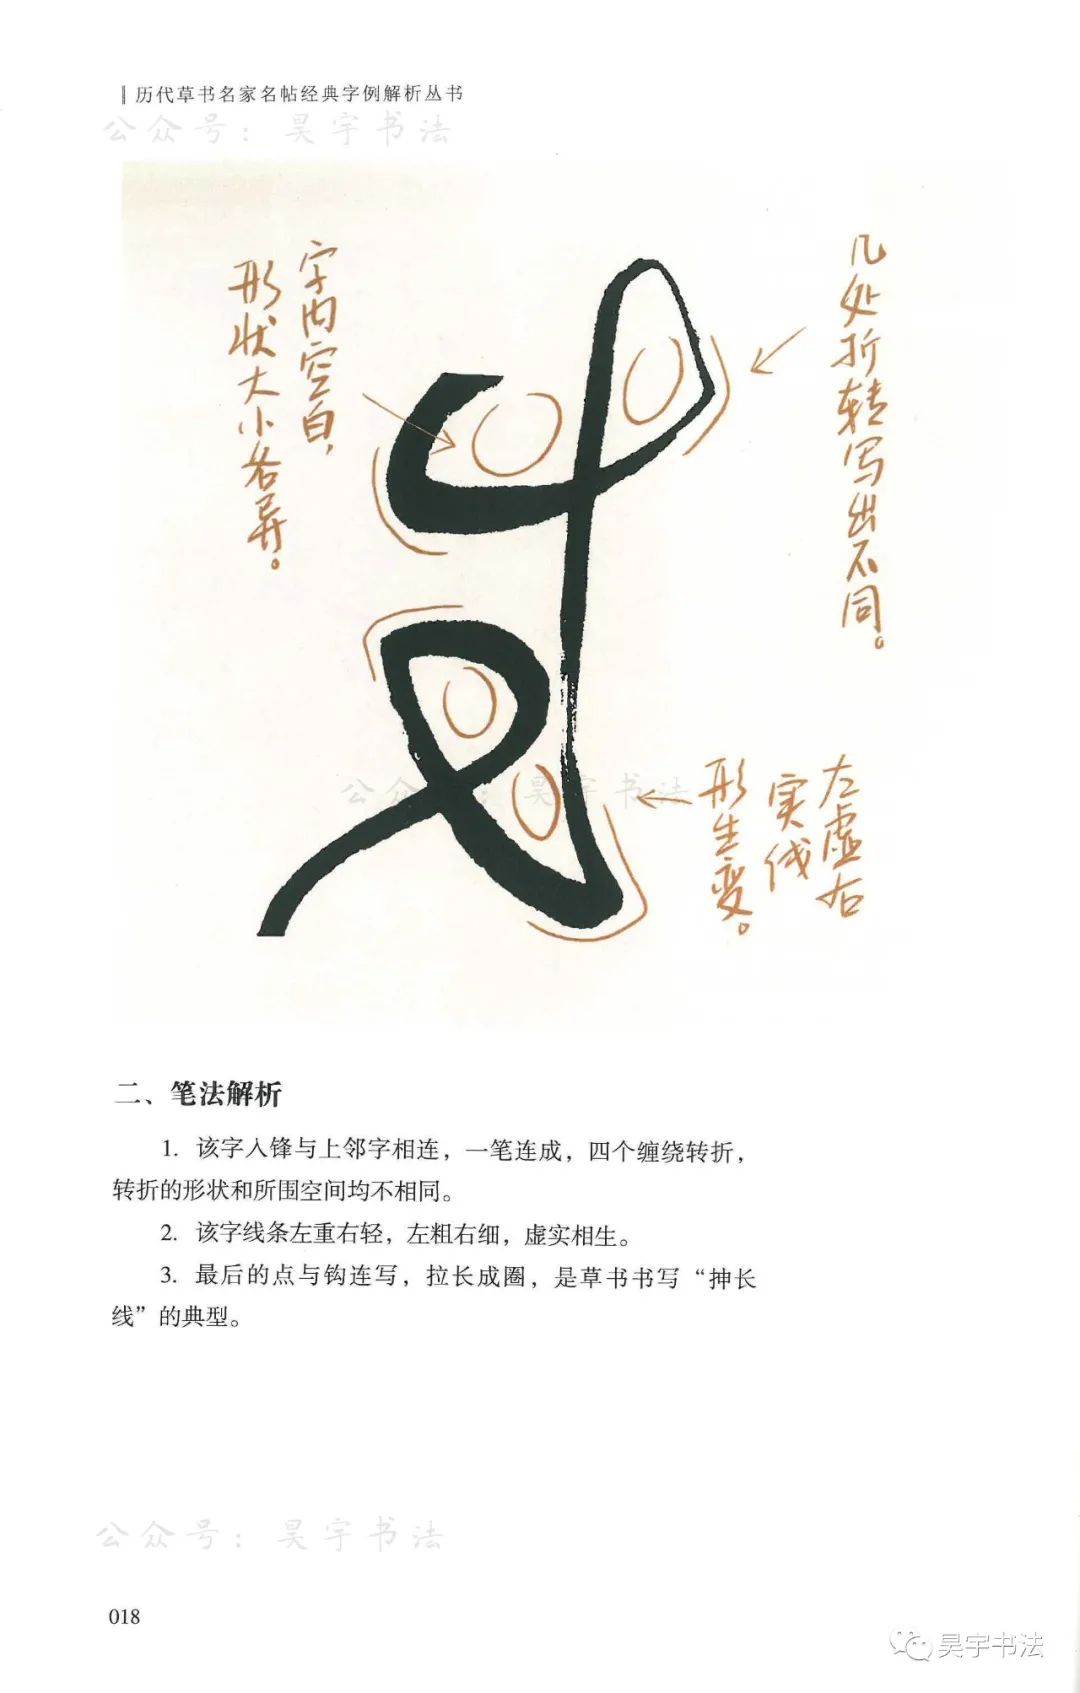 历代草书名家名帖经典字例解析丛书
公众号：昊宇书法
字内空白，
形状大小各异。
几处折转写出不同。
公众号：昊宇书法
左虚右
实线
形生变。
二、笔法解析
1. 该字入锋与上邻字相连，一笔连成，四个缠绕转折，
转折的形状和所围空间均不相同。
2. 该字线条左重右轻，左粗右细，虚实相生。
3. 最后的点与钩连写，拉长成圈，是草书书写“抻长
线”的典型。
公众号：昊宇书法
018
昊宇书法